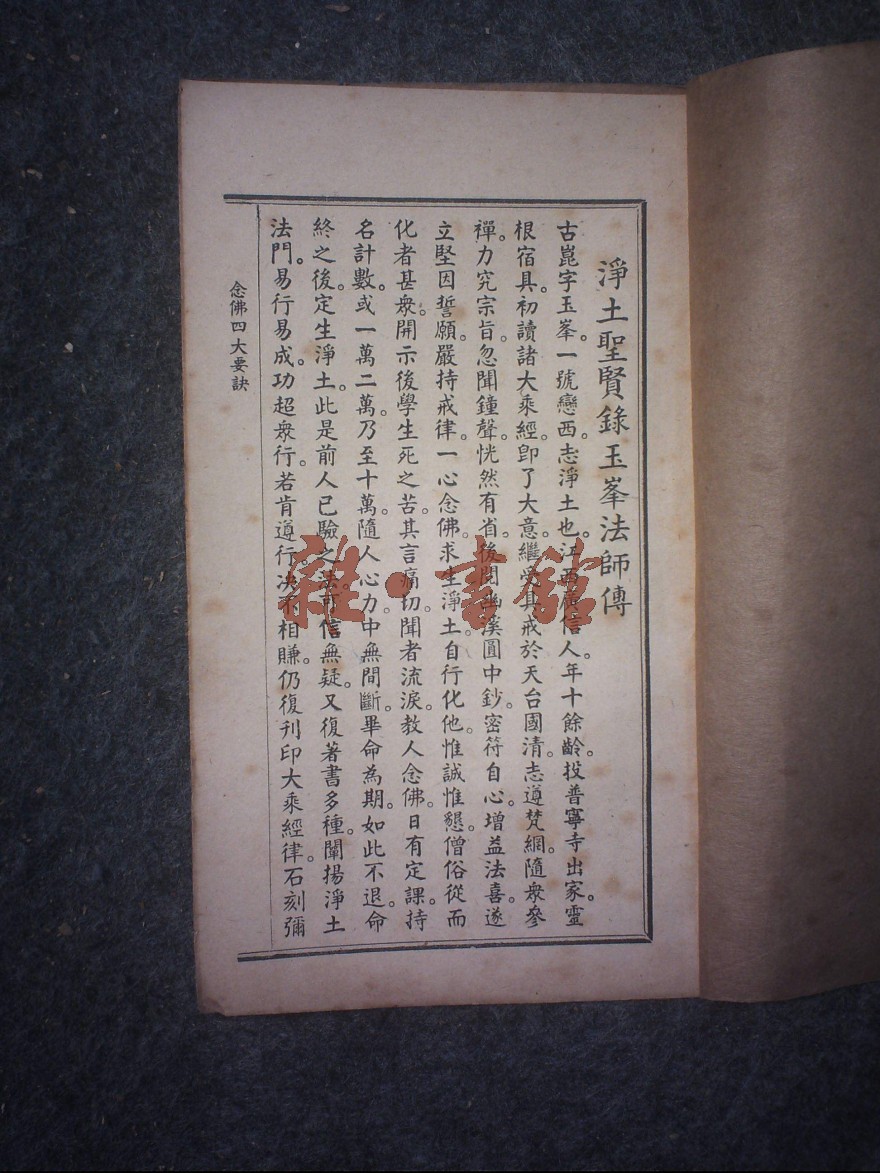 淨土聖賢錄玉峯法師傳
古崑字玉峯。一號戀西志淨土也。江西廣信人。年十餘齡。投普寧寺出家。靈
根宿具。初讀諸大乘經。卽了大意。繼受具戒於天台國清。志遵梵網。隨衆參
禪。力究宗旨。忽聞鐘聲。恍然有省。後閱幽溪圓中鈔。密符自心。增益法喜。遂
立堅因誓願。嚴持戒律。一心念佛。求生淨土。自行化他。惟誠惟懇。僧俗從而
化者甚衆。開示後學生死之苦。其言痛切。聞者流淚。教人念佛。日有定課。持
名計數。或一萬二萬。乃至十萬。隨人心力。中無間斷。畢命為期。如此不退。命
終之後。定生淨土。此是前人已驗之法。可信無疑。又復著書多種。闡揚淨土
法門。易行易成。功超衆行。若肯遵行。決不相賺。仍復刊印大乘經律。石刻彌
念佛四大要訣
雜·書館